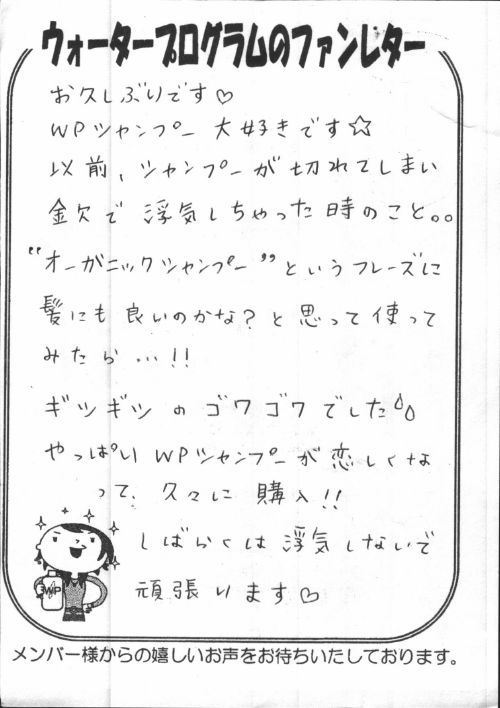 ウォータープログラムのファンレター
お久しぶりです♡
WPシャンプー大好きです☆
以前、シャンプーが切れてしまい
金欠で浮気しちゃった時のこと。。
“オーガニックシャンプー”というフレーズに
髪にも良いのかな?と思って使って
みたら…!!
ギシギシのゴワゴワでした
やっぱいWPシャンプーが恋しくな
って、久々に購入!!
しばらくは浮気しないで
頑張ります♡
WP
メンバー様からの嬉しいお声をお待ちいたしております。